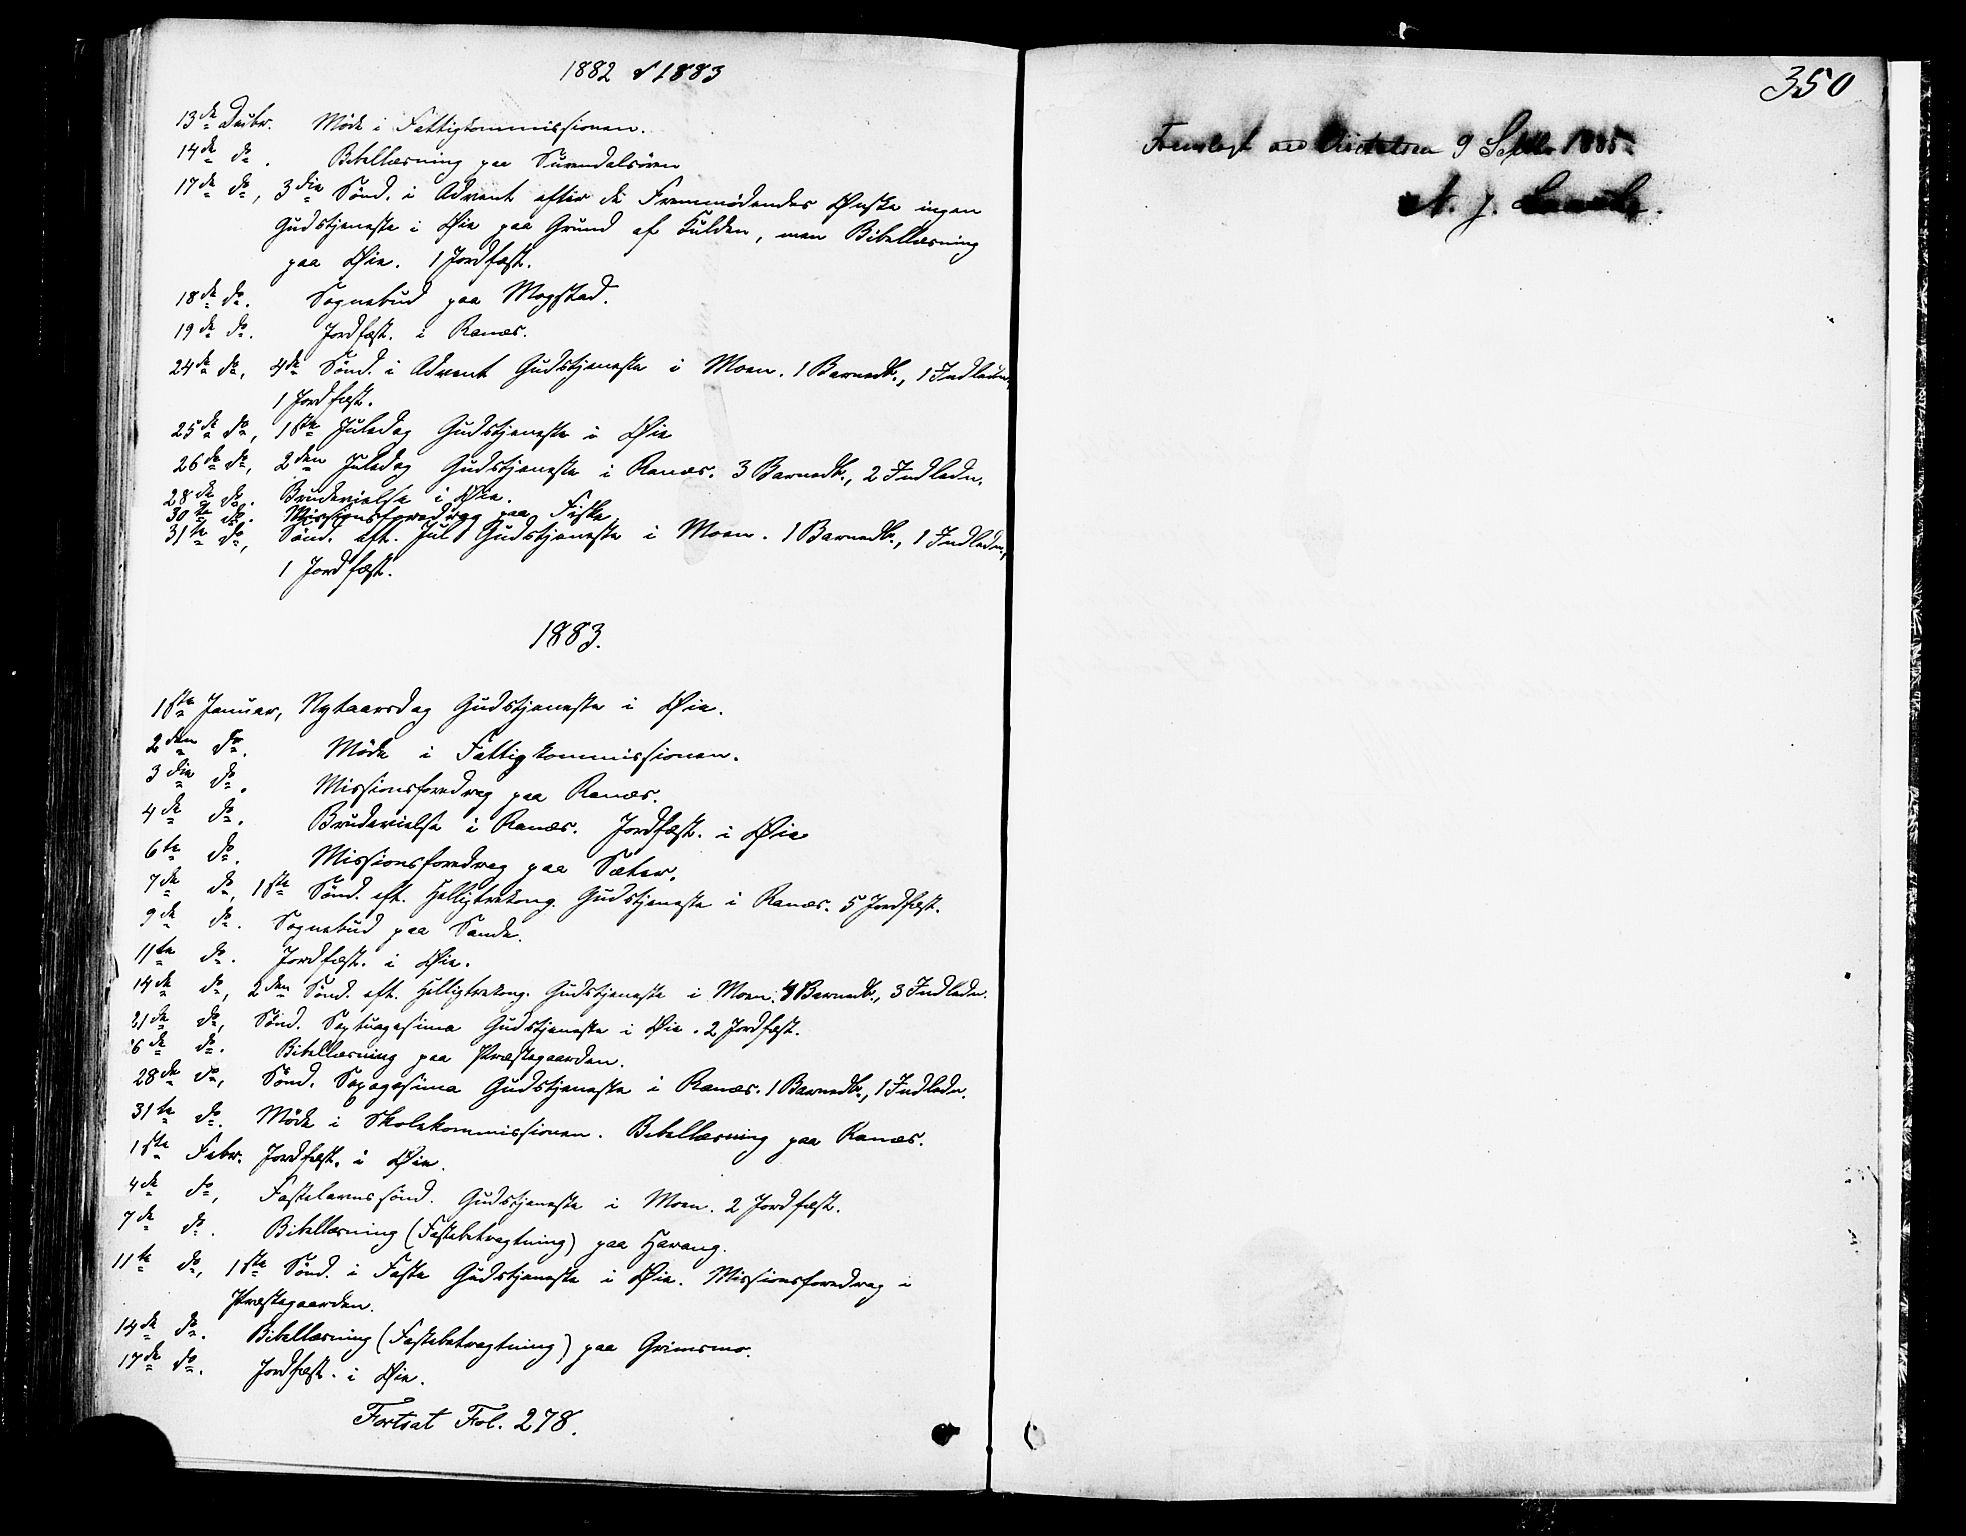 1882 & 1883
13de Decbr. Møde i Fattigkommissionen.
14de do. Bibellæsning paa Surendalsøren
17de do, 3die Sønd. i Advent efter de Fremmødendes Ønske ingen
Gudstjeneste i Øie paa Grund af Kulden, men Bibellæsning
paa Øie. 1 Jordfæst.
18de do. Sognebud paa Mogstad.
19de do. Jordfæst. i Ranæs.
24de do, 4de Sønd. i Advent Gudstjeneste i Moen. 1 Barnedb., 1 Indledn.,
1 Jordfæst.
25de do, 1ste Juledag Gudstjeneste i Øie
26de do, 2den Juledag Gudstjeneste i Ranæs. 3 Barnedb., 2 Indledn.
28de do. Brudevielse i Øie.
30te do. Missionsforedrag paa Fiske
31te do, Sønd. eft. Jul Gudstjeneste i Moen. 1 Barnedb., 1 Indledn.,
1 Jordfæst.
1883.
1ste Januar, Nytaarsdag Gudstjeneste i Øie.
2den do. Møde i Fattigkommissionen.
3die do. Missionsforedrag paa Ranæs.
4de do. Brudevielse i Ranæs. Jordfæst. i Øie
6te do. Missionsforedrag paa Sæter.
7de do, 1ste Sønd. eft. Helligtrekong. Gudstjeneste i Ranæs. 5 Jordfæst.
9de do. Sognebud paa Sande.
11te do. Jordfæst. i Øie.
14de do, 2den Sønd. eft. Helligtrekong. Gudstjeneste i Moen. 4 Barnedb., 3 Indledn.
21de do, Sønd. Septuagesima Gudstjeneste i Øie. 2 Jordfæst.
6de do. Bibellæsning paa Præstegaarden.
28de do, Sønd. Sexagesima Gudstjeneste i Ranæs. 1 Barnedb., 1 Indledn.
31te do. Møde i Skolekommissionen. Bibellæsning paa Ranæs.
1ste Febr. Jordfæst. i Øie.
4de do, Fastelavnssønd. Gudstjeneste i Moen. 2 Jordfæst.
7de do. Bibellæsning (Fastebetragtning) paa Harang.
11te do, 1ste Sønd. i Faste Gudstjeneste i Øie. Missionsforedrag i
Præstegaarden.
14de do. Bibellæsning (Fastebetragtning) paa Grimsmo.
17de do. Jordfæst. i Øie.
Fortsat Fol. 278.
350
Fremlagt ved Visitatsen 9 Septbr 1885
N. J.